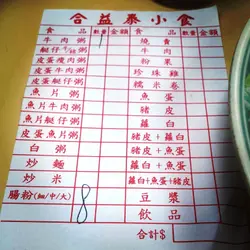 合益泰小食
食品 數量 金額 食品 數量 金額
牛肉粥 1 燒賣
艇仔粥 牛肉
皮蛋瘦肉粥 粉果
皮蛋牛肉粥 珍珠雞
皮蛋艇仔粥 糯米卷
魚片粥 魚蛋
魚片牛肉粥 豬皮
魚片艇仔粥 蘿白
皮蛋魚片粥 豬皮+蘿白
白粥 豬皮+魚蛋
炒麵 蘿白+魚蛋
炒米 蘿白+魚蛋+豬皮
腸粉(細/中/大) 8 豆漿
飲品
合計$